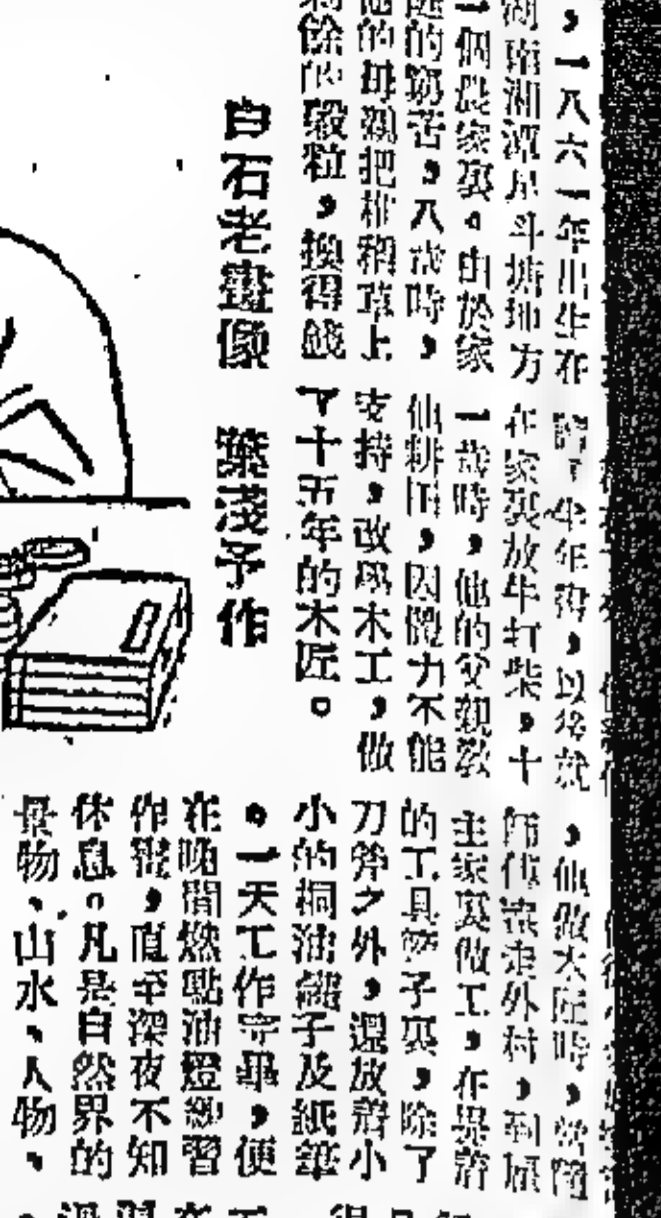 ，一八六一年出生在
湖南湘潭星斗塘地方
一個農家裏。由於家
庭的窮苦，八歲時，
他的母親把粘稻草上
剩餘的穀粒，換得錢
讀了半年書，以後就
在家裏放牛打柴，十
一歲時，他的父親教
他耕田，因體力不能
支持，改爲木工，做
了十五年的木匠。
白石老畫像　葉淺予作
，他做木匠時，
師傅走外村，到
主家裏做工，在
的工具子裏，除了
刀斧之外，還放着小
小的桐油罐子及紙筆
。一天工作完畢，便
在晚間燃點油燈練習
作畫，直至深夜不知
休息。凡是自然界的
景物、山水、人物、